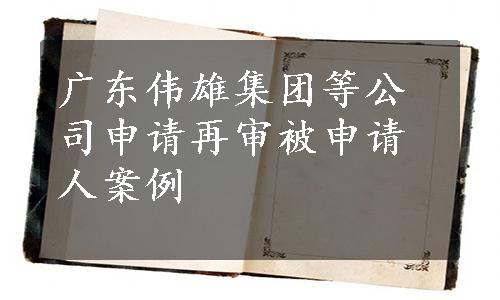 广东伟雄集团等公
司申请再审被申请
人案例